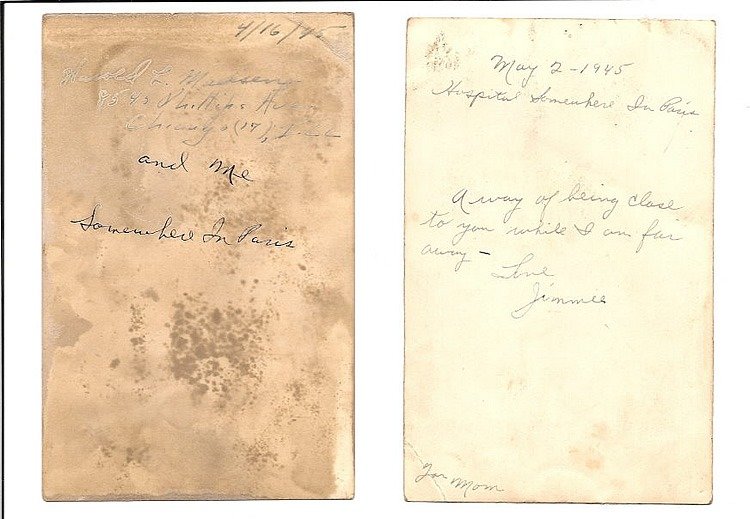 4/16/45
Harold L.
Ave.
Chicago (17), Ill
and Me
Somewhere In Paris
May 2-1945
Hospital Somewhere In Paris
A way of being close
to you while I am far
away -
Love
Jimmee
For Mom